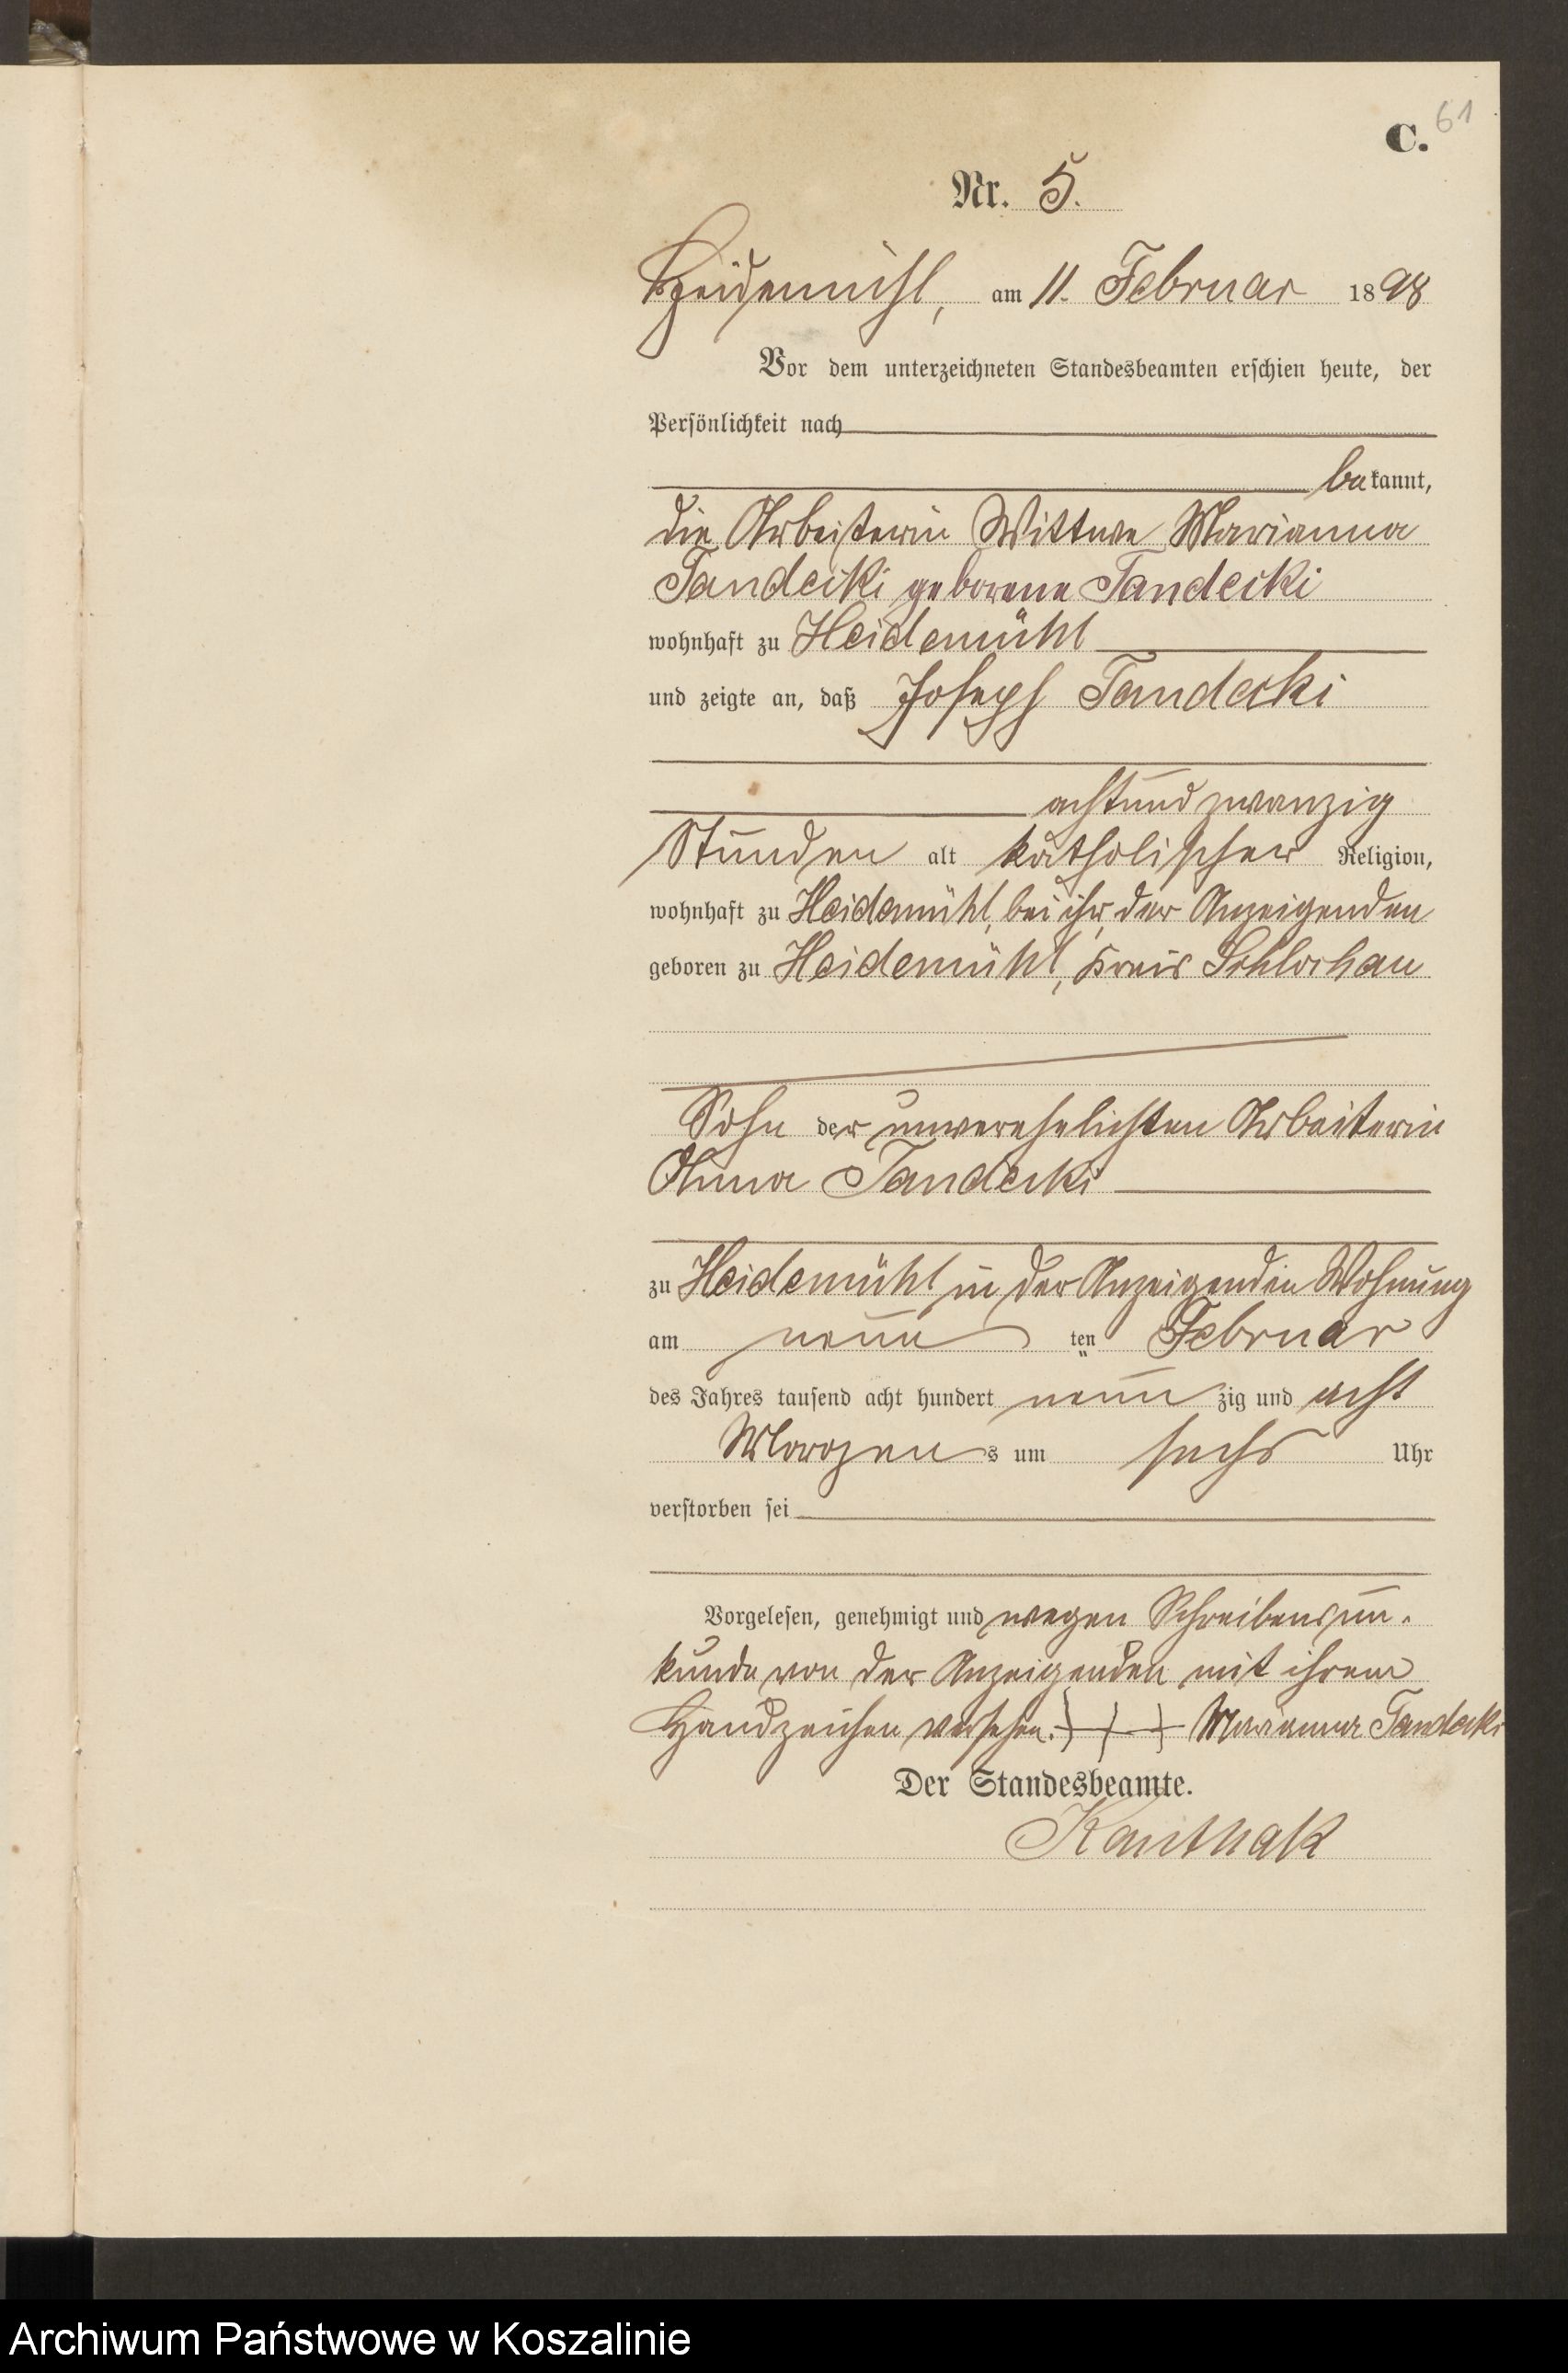 C. 61
Nr. 5.
Heidemühl, am 11. Februar 1898
Vor dem unterzeichneten Standesbeamten erschien heute, der
Persönlichkeit nach
bekannt,
die Arbeiterin Wittwe Marianna
Tandecki geborene Tandecki
wohnhaft zu Heidemühl
und zeigte an, daß Joseph Tandecki
achtundzwanzig
Stunden alt katholischer Religion,
wohnhaft zu Heidemühl, bei ihr, der Anzeigenden
geboren zu Heidemühl, Kreis Schlochau
Sohn der unverehelichten Arbeiterin
Anna Tandecki
zu Heidemühl in der Anzeigenden Wohnung
am neun ten Februar
des Jahres tausend acht hundert neun zig und acht
Morgens um sechs Uhr
verstorben sei
Vorgelesen, genehmigt und wegen Schreibensun-
kunde von der Anzeigenden mit ihrem
Handzeichen versehen. +++ Marianna Tandecki
Der Standesbeamte.
Kanthak
Archiwum Państwowe w Koszalinie